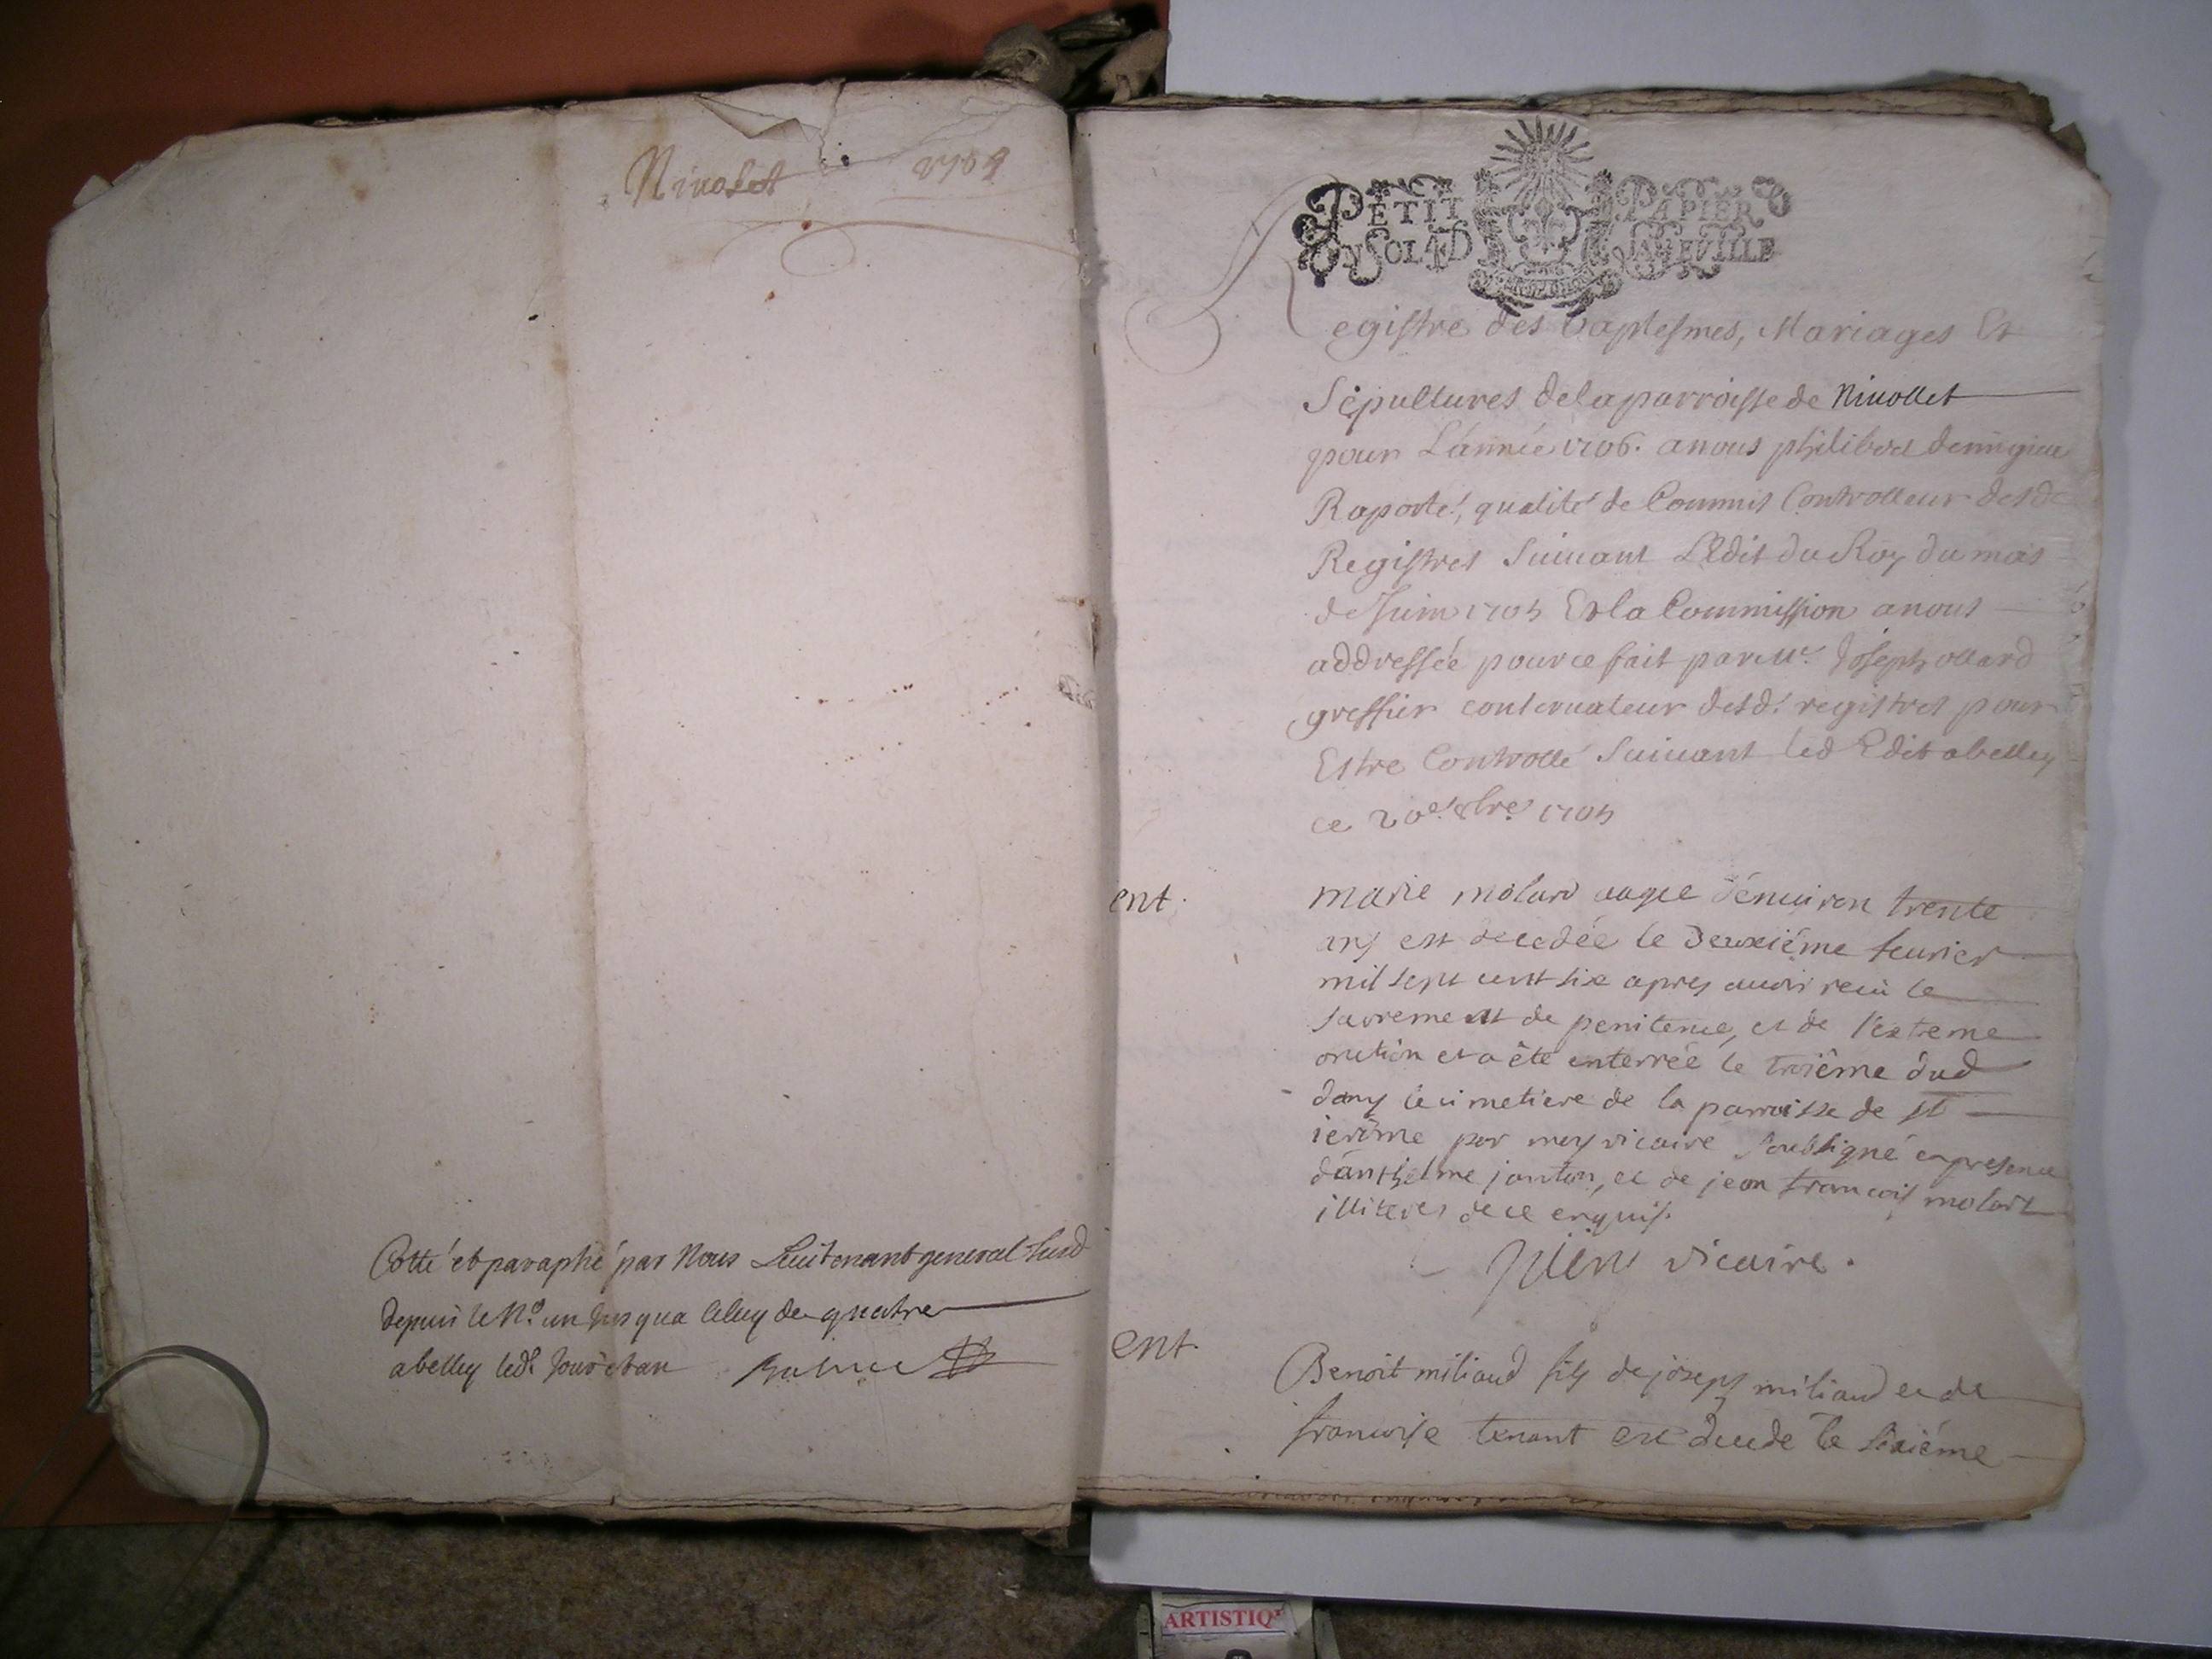 Nivolet
Cotté et paraphé par Nous Lieutenant general susd
depuis le No. un jusqua celuy de quatre
abelley led. jour et an
PETIT PAPIER
UN SOL 4 D LA FEUILLE
Registre des baptesmes, Mariages Et
Sépultures de la parroisse de Nivollet
pour L'année 1706. a nous philibert
Raporté, qualité de Commis Controlleur desd
Registres Suivant L'Edit du Roy du mois
de Juin 1705 Et la Commission a nous
addressée pour ce fait par Me. Joseph ollard
greffier conservateur desd. registres pour
Estre Controllé Suivant led Edit abelley
ce 20e. 8bre. 1705
ent.
marie molard aagee d'environ trente
ans est decedée le Deuxiéme feurier
mil sept cent six apres avoir receu le
sacrement de penitence, et de l'extreme
onction et a été enterrée le troiéme dud
dans le cimetiere de la parroisse de st
ierôme par moy vicaire soubsigné en presence
d'anthelme janton, et de jean françois molart
illiteres de ce enquis.
vicaire.
ent.
Benoit miliand fils de joseph miliand et de
françoise tenant est decede le sixiéme
ARTISTIQ